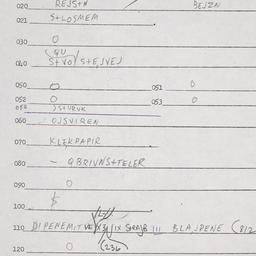 020 REJSTH BEJZN
021 S+LOSMEM
030 O
QU
040 S+VO S+EJVEJ
050 O 051 O
052 O 053 O
054 JS+URUK
060 OJSVIREN
070 KLEKPAPIR
080 - QBRIVNS+TELER
090 O
100
110 DIPENEMIT III BLAJDENE (812
120 O (236